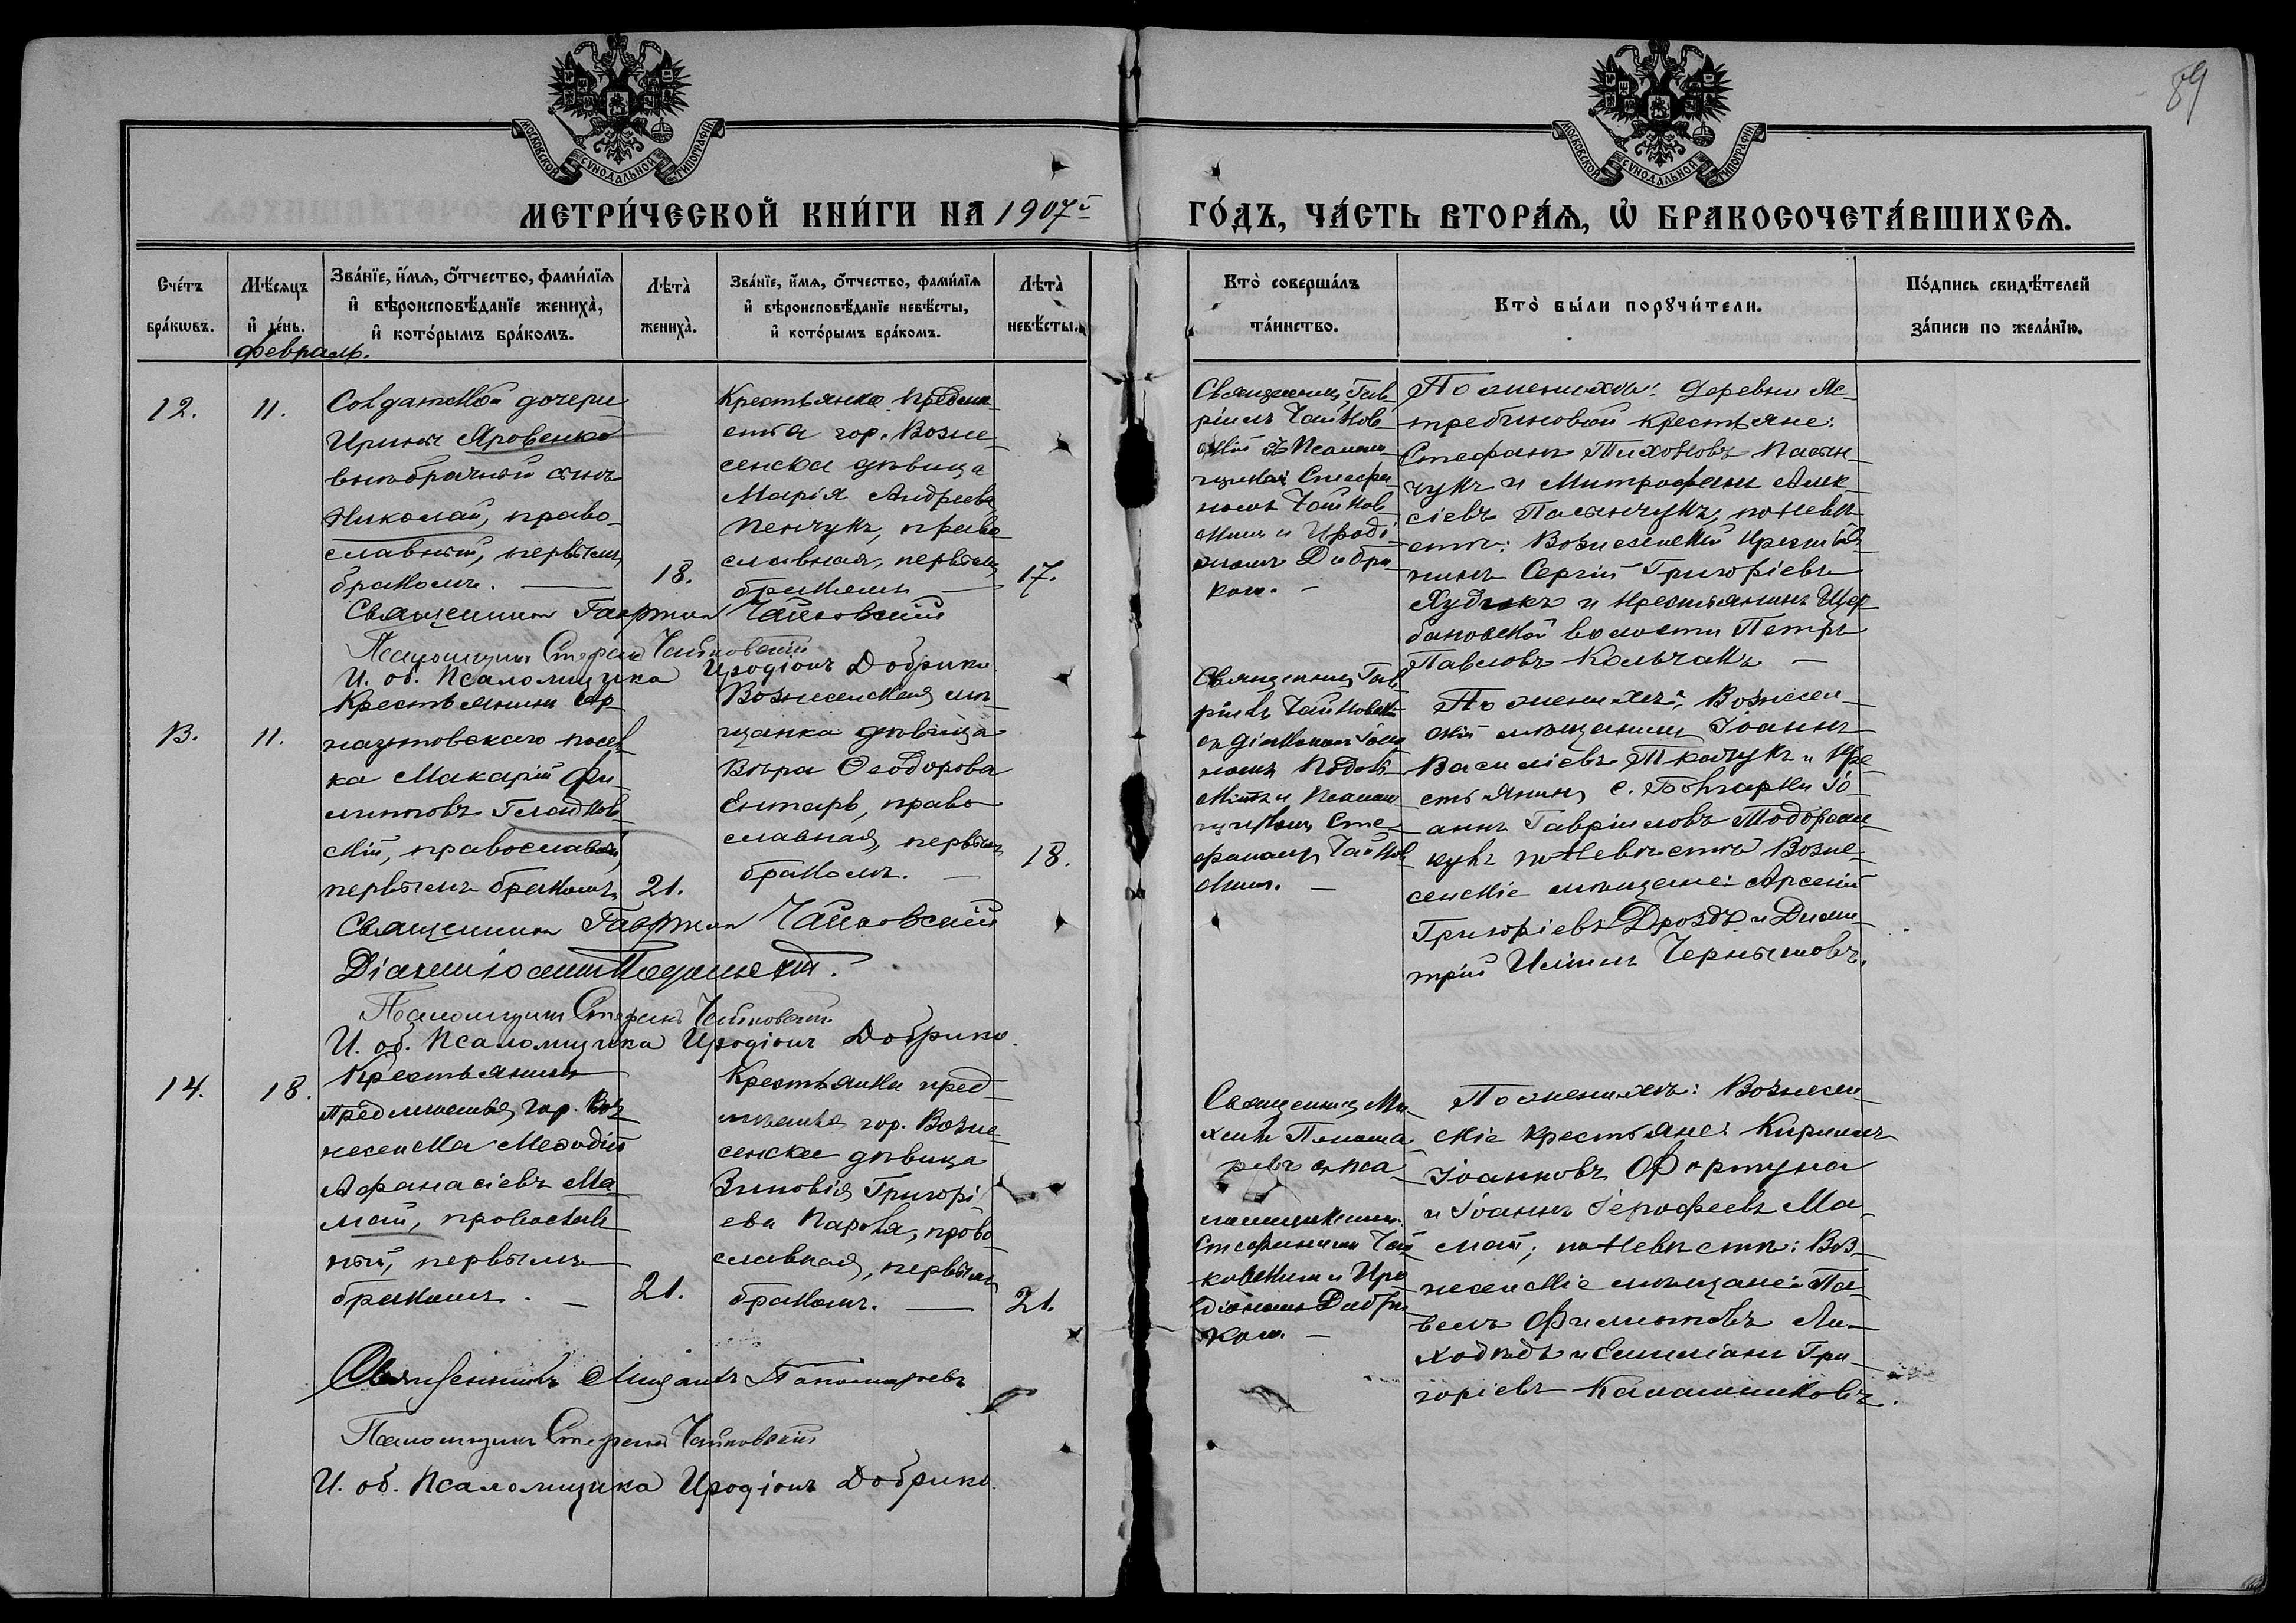 89
МОСКОВСКОЙ СѴНОДАЛЬНОЙ ТИПОГРАФІИ
МОСКОВСКОЙ СѴНОДАЛЬНОЙ ТИПОГРАФІИ
МЕТРИ́ЧЕСКОЙ КНИ́ГИ НА 1907й ГО́ДЪ, ЧА́СТЬ ВТОРА́Ѧ, Ѽ БРАКОСОЧЕТА́ВШИХСѦ.
Сче́тъ бра́кѡвъ.
Мѣ́сяцъ и҆ де́нь.
Зва́нїе, и҆́мя, ѻ҆́тчество, фами́лїя
и҆ вѣроисповѣ́данїе жениха̀,
и҆ кото́рымъ бра́комъ.
Лѣта̀ жениха̀.
Зва́нїе, и҆́мя, ѻ҆́тчество, фами́лїя
и҆ вѣроисповѣ́данїе невѣ́сты,
и҆ кото́рымъ бра́комъ.
Лѣта̀ невѣ́сты.
Кто̀ соверша́лъ
та́инство.
Кто̀ бы́ли порꙋчи́тели.
По́дпись свидѣ́телей
за́писи по жела́нїю.
февраль.
12.
11.
Солдатской дочери
Ирины Яровенко
внѣбрачный сынъ
Николай, право-
славный, первымъ
бракомъ. —
18.
Крестьянка предмѣ-
стья гор. Возне-
сенска дѣвица
Марія Андреева
Пенчукъ, право
славная, первымъ
бракомъ —
17.
Священникъ Гав-
ріилъ Чайков-
скій съ Псалом-
щиками Стефа-
номъ Чайков-
скимъ и Ироді-
ономъ Добри-
ком. —
По женихѣ: деревни Яс-
требиновой крестьяне:
Стефанъ Тихоновъ Пасѣн-
чукъ и Митрофанъ Алек-
сіевъ Пасѣнчукъ; по невѣ-
стѣ: Вознесенскій крестья-
нинъ Сергій Григоріевъ
Худикъ и крестьянинъ Щер-
бановской волости Петръ
Павловъ Кольчакъ —
Священникъ Гавріилъ Чайковскій
Псаломщикъ Стефанъ Чайковскій
И. об. Псаломщика Иродіонъ Добрико
13.
11.
Крестьянинъ Ар-
наутовскаго посел-
ка Макарій Фи-
липповъ Гладков-
скій, православный,
первымъ бракомъ,
21.
Вознесенская мѣ-
щанка дѣвица
Вѣра Ѳеодорова
Ентарь, право-
славная, первымъ
бракомъ. —
18.
Священникъ Гав-
ріилъ Чайковскій
съ діакономъ Іоан-
номъ
и Псалом-
щикомъ Сте-
фаномъ Чайков-
скимъ. —
По женихѣ: Вознесен-
скій мѣщанинъ Іоаннъ
Василіевъ Ткачукъ и кре-
стьянинъ с. Болгарки Іо-
аннъ Гавріиловъ
по невѣстѣ Возне-
сенскіе мѣщане: Арсеній
Григоріевъ Дроздъ и Дими-
трій Иліинъ Чернышовъ.
Священникъ Гавріилъ Чайковскій
Діаконъ Іоаннъ
Псаломщикъ Стефанъ Чайковскій
И. об. Псаломщика Иродіонъ Добрико.
14.
18.
Крестьянинъ
предмѣстья гор. Воз-
несенска Меѳодій
Аѳанасіевъ Ма-
май, православ-
ный, первымъ
бракомъ. —
21.
Крестьянка пред-
мѣстья гор. Возне-
сенска дѣвица
Зиновія Григорі-
ева право-
славная, первымъ
бракомъ. —
21.
Священникъ Ми-
хаилъ Понома-
ревъ съ пса-
ломщиками
Стефаномъ Чай
ковскимъ и Иро
діономъ Добри
ком. —
По женихѣ: Вознесен-
скіе крестьяне: Кириллъ
Іоанновъ Фортуна
и Іоаннъ Іерофеевъ Ма-
май; по невѣстѣ: Воз-
несенскіе мѣщане: Па-
велъ Филипповъ Ли-
ходѣдъ и Емиліанъ Гри-
горіевъ Калашниковъ.
Священникъ Михаилъ Пономаревъ
Псаломщикъ Стефанъ Чайковскій
И. об. Псаломщика Иродіонъ Добрико.